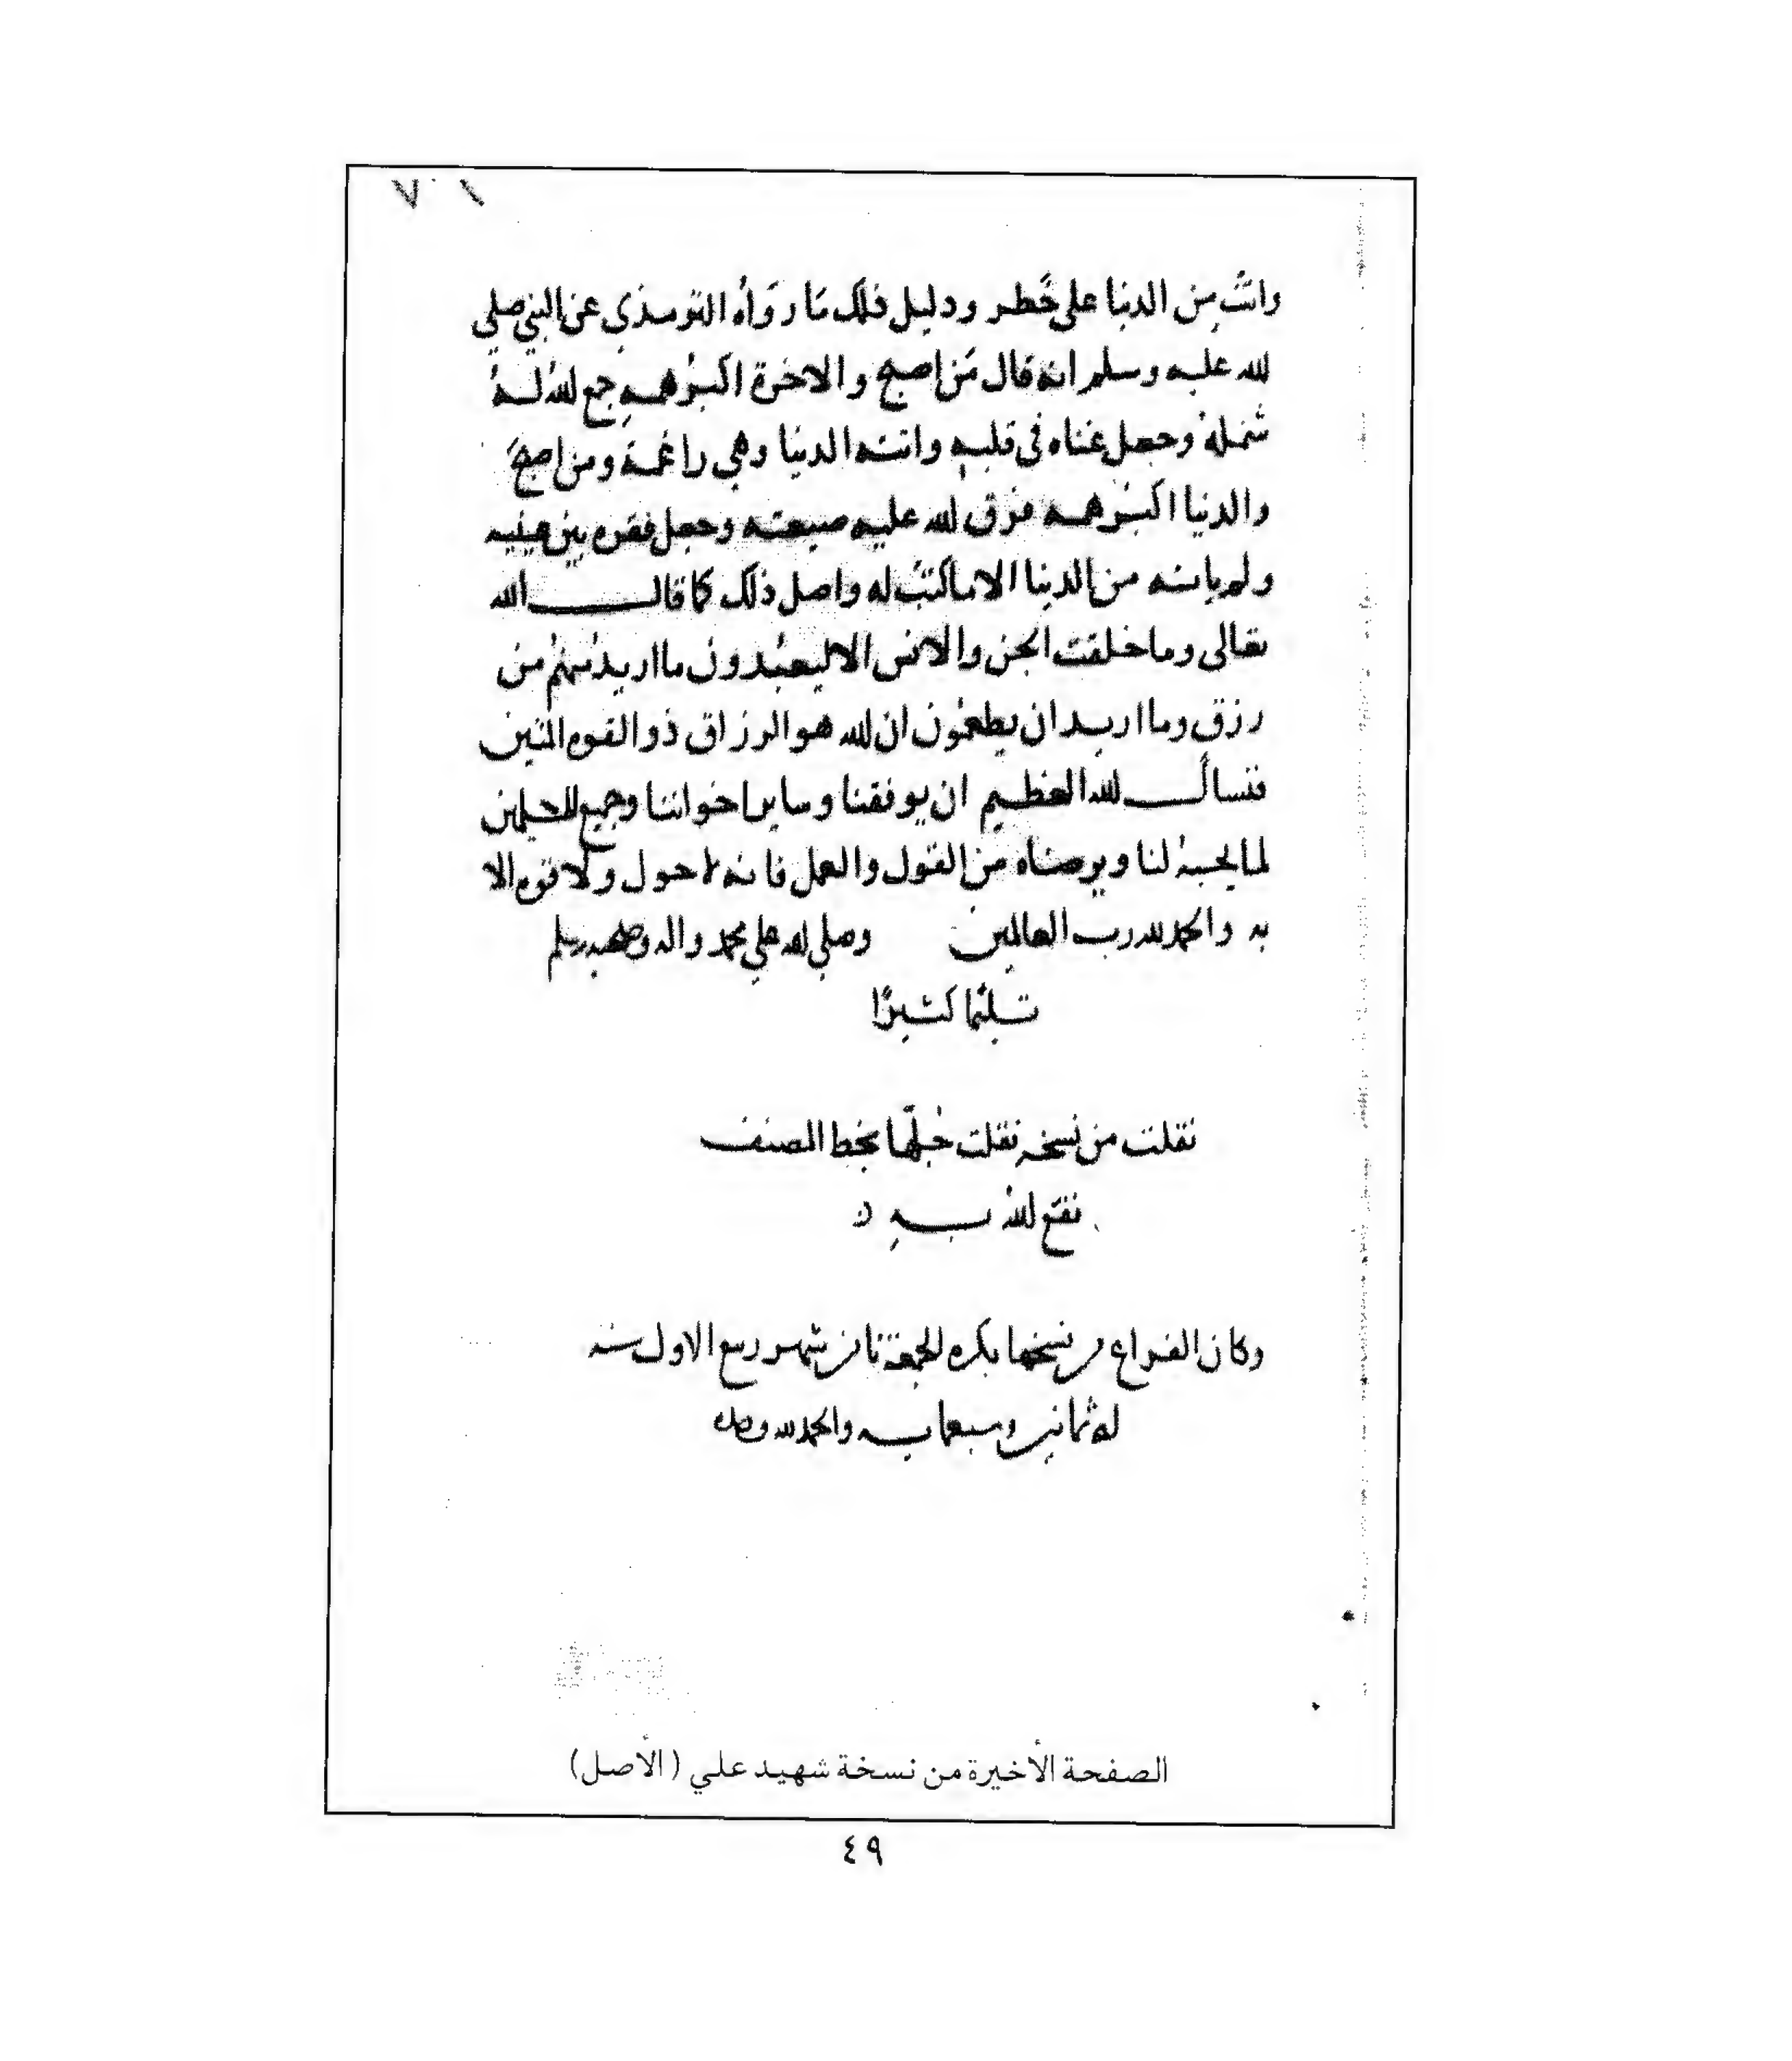 ١٠٧
وانت من الدنيا على خطر ودليل ذلك ما رواه الترمذي عن النبي صلى
الله عليه وسلم انه قال من اصبح والاخرة اكبر همه جمع الله له
شمله وجعل غناه في قلبه واتته الدنيا وهي راغمة ومن اصبح
والدنيا اكبر همه فرق الله عليه ضيعته وجعل فقره بين عينيه
ولم ياته من الدنيا الا ما كتب له واصل ذلك كما قال الله
تعالى وما خلقت الجن والانس الا ليعبدون ما اريد منهم من
رزق وما اريد ان يطعمون ان الله هو الرزاق ذو القوه المتين
فنسال الله العظيم ان يوفقنا وساير اخواننا وجميع المسلمين
لما يحبه لنا ويرضاه من القول والعمل فانه لا حول ولا قوه الا
به والحمد لله رب العالمين وصلى الله على محمد واله وصحبه وسلم
تسليما كثيرا
نقلت من نسخه نقلت جلها بخط المصنف
نفع الله به
وكان الفراغ من نسخها بكره الجمعة ثامن شهر ربيع الاول سنه
ثمانين وسبعمايه والحمد لله وحده
الصفحة الأخيرة من نسخة شهيد علي (الأصل)
٤٩